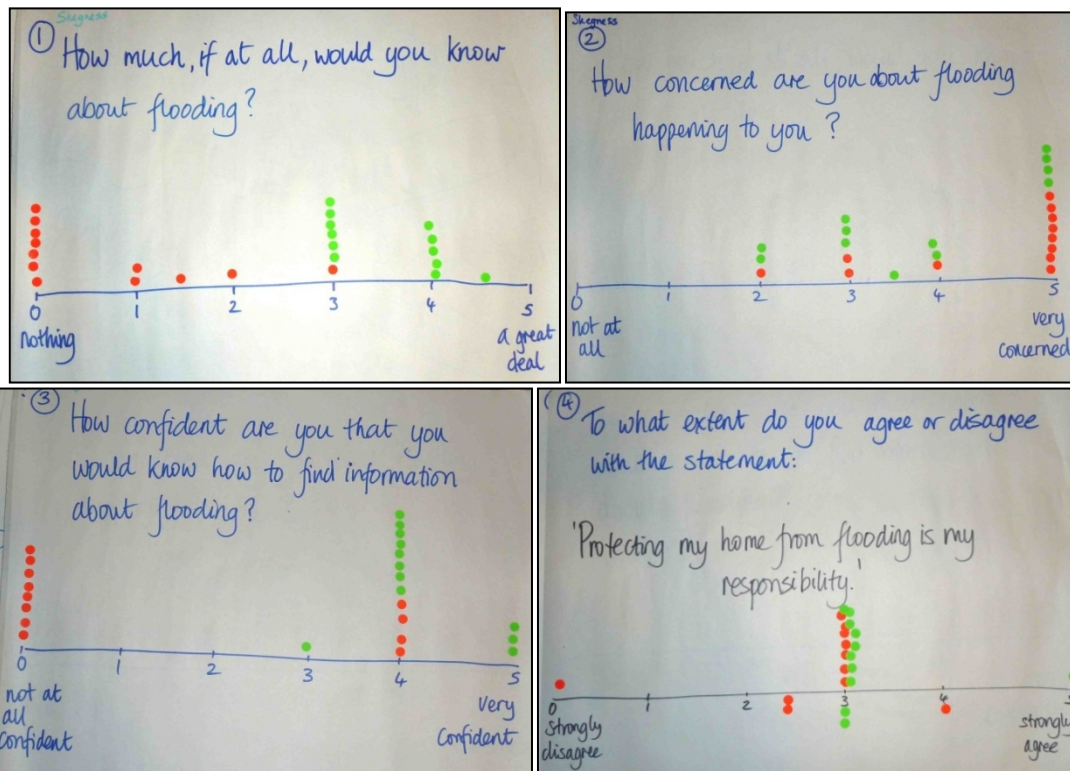 Skegness
①
How much, if at all, would you know
about flooding?
0 1 2 3 4 5
nothing
a great
deal
Skegness
②
How concerned are you about flooding
happening to you?
0 1 2 3 4 5
not at
all
very
concerned
③
How confident are you that you
would know how to find information
about flooding?
0 1 2 3 4 5
not at
all
confident
very
confident
④
To what extent do you agree or disagree
with the statement:
'Protecting my home from flooding is my
responsibility.'
0 1 2 3 4
strongly
disagree
strongly
agree